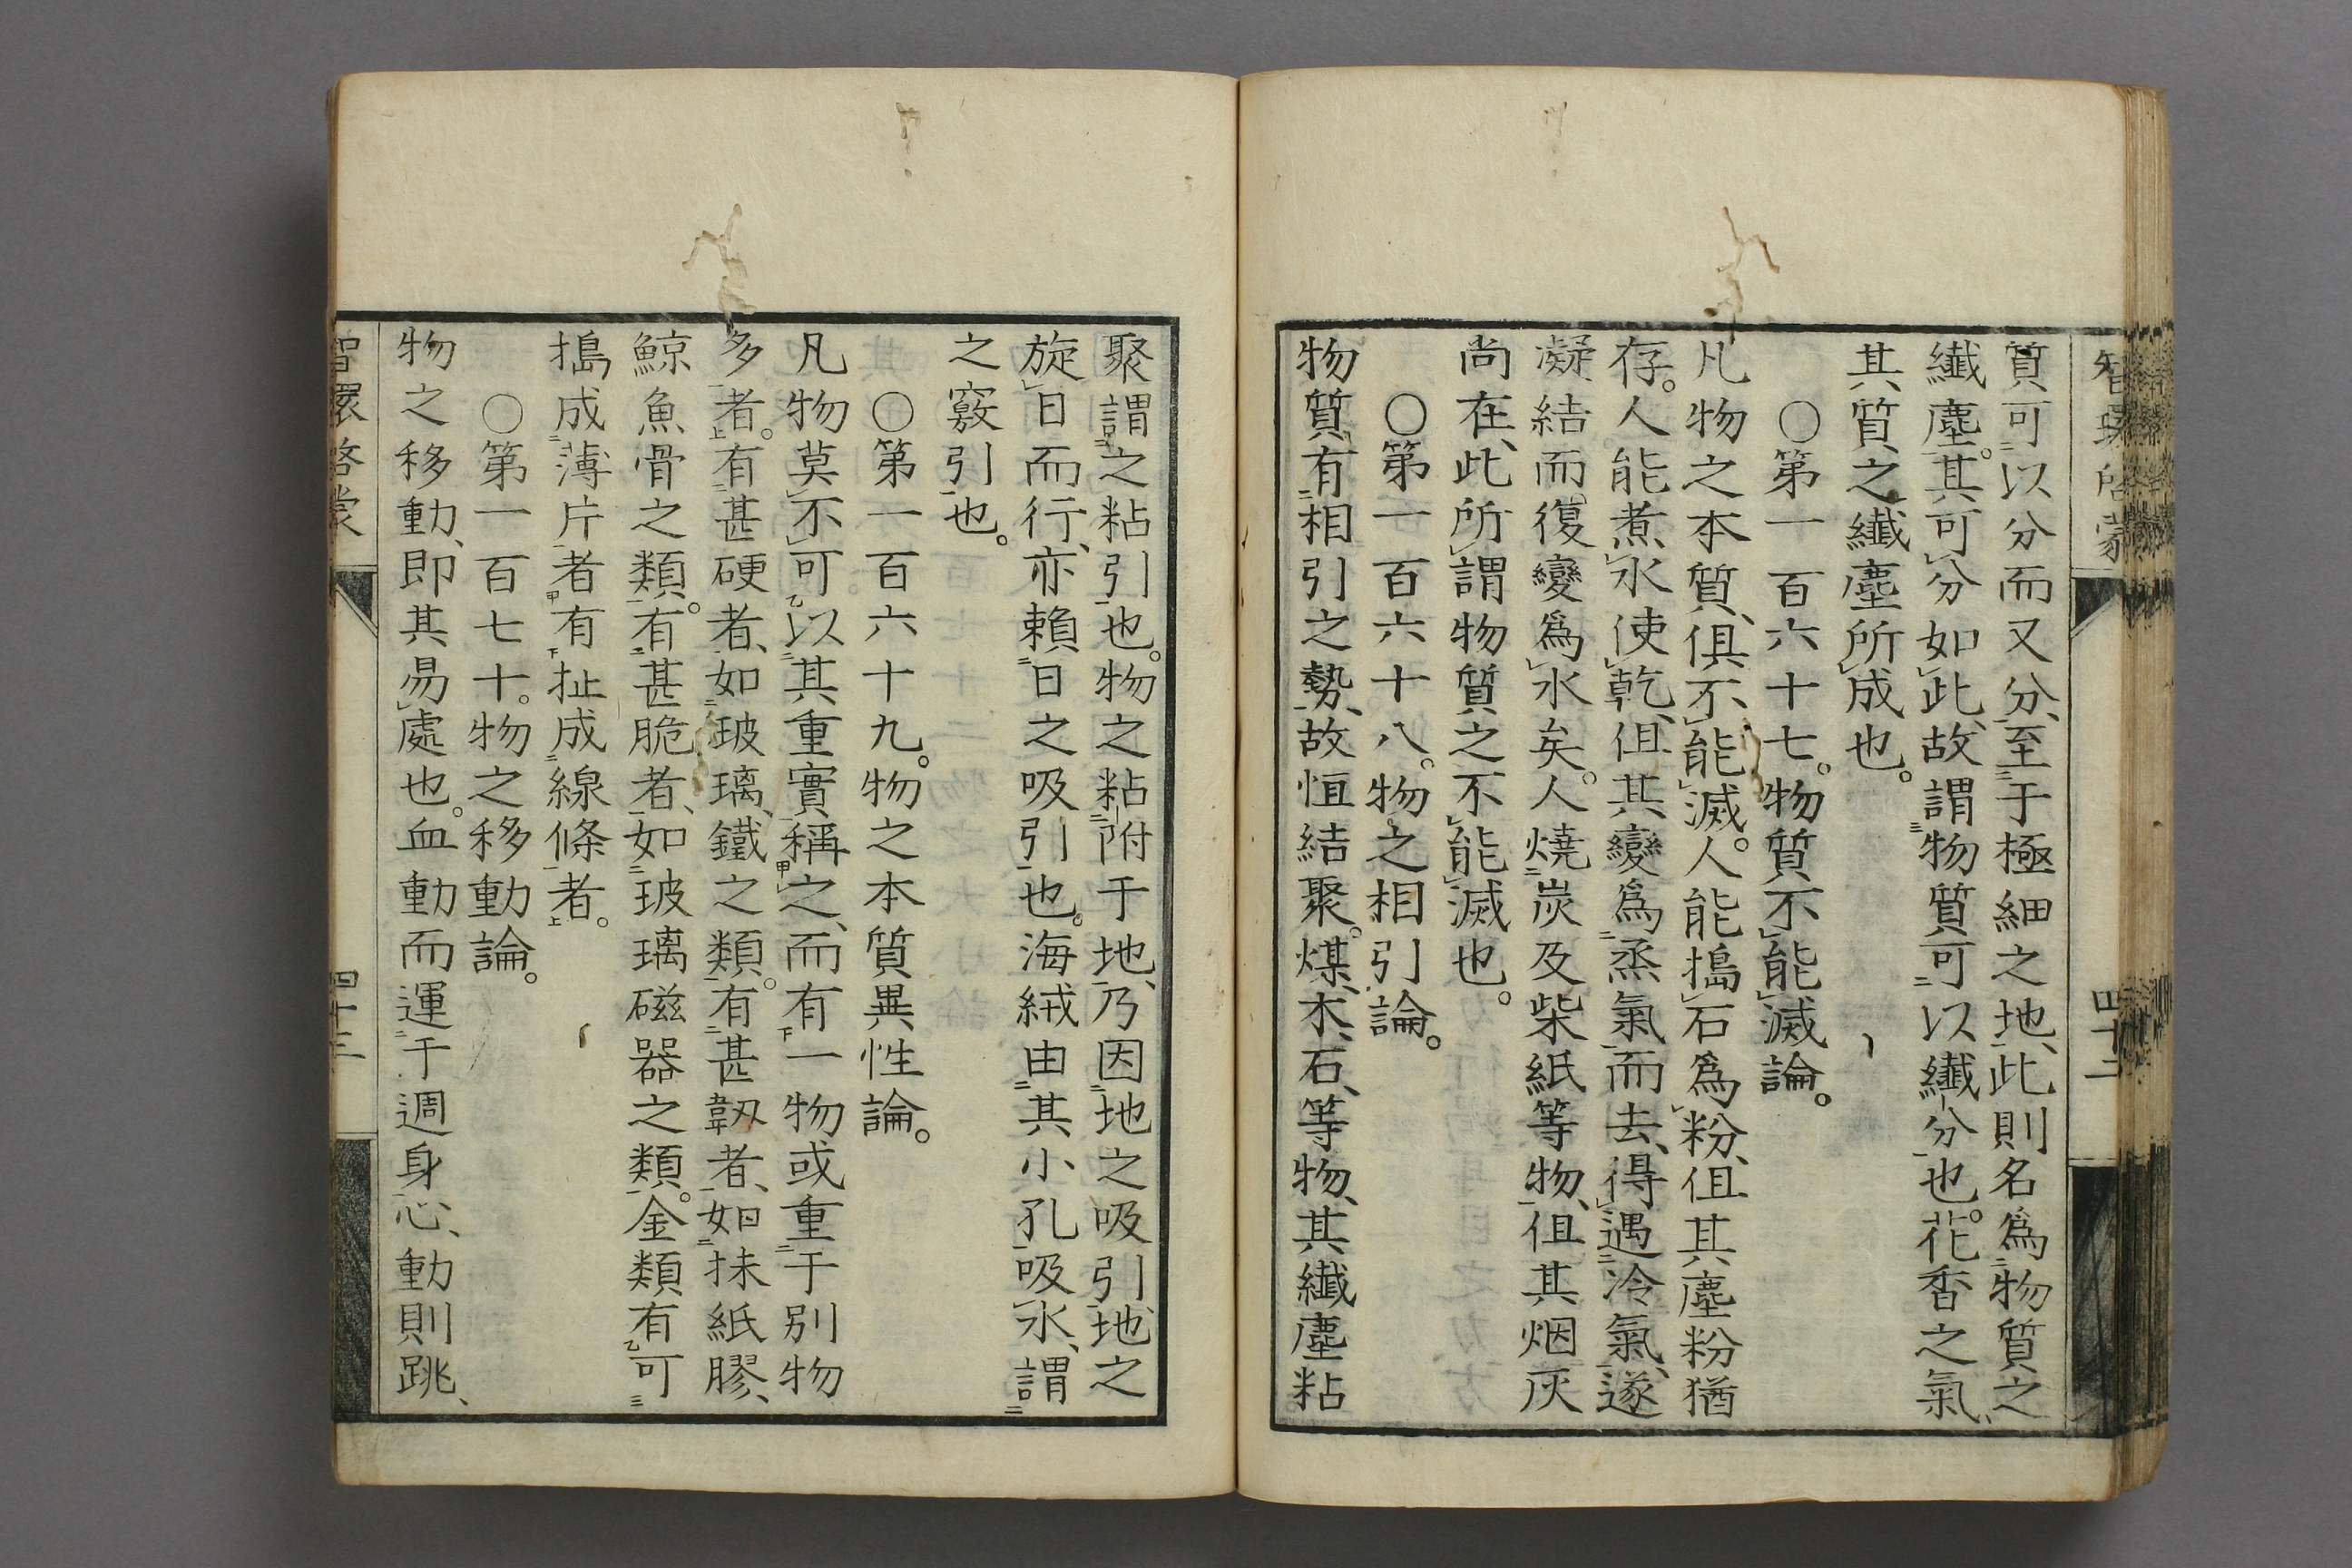 智環啓蒙
四十二
質可以分而又分、至于極細之地、此則名爲物質之
纎塵。其可分如此、故謂物質可以纎分也。花香之氣、
其質之纎塵所成也。
○第一百六十七。物質不能滅論。
凡物之本質、俱不能滅。人能搗石爲粉、但其塵粉猶
存。人能煮水使乾、但其變爲烝氣而去、得遇冷氣、遂
凝結而復變爲水矣。人燒炭及柴紙等物、但其烟灰
尚在、此所謂物質之不能滅也。
○第一百六十八。物之相引論。
物質有相引之勢、故恒結聚。煤、木、石、等物、其纎塵粘
聚謂之粘引也。物之粘附于地、乃因地之吸引、地之
旋日而行、亦賴日之吸引也。海絨由其小孔吸水、謂
之竅引也。
○第一百六十九。物之本質異性論。
凡物莫不可以其重實稱之、而有一物或重于別物
多者。有甚硬者、如玻璃、鐵之類。有甚韌者、如抹紙膠、
鯨魚骨之類。有甚脆者、如玻璃磁器之類。金類有可
搗成薄片者有扯成線條者。
○第一百七十。物之移動論。
物之移動、即其易處也。血動而運于週身、心動則跳、
智環啓蒙
四十三